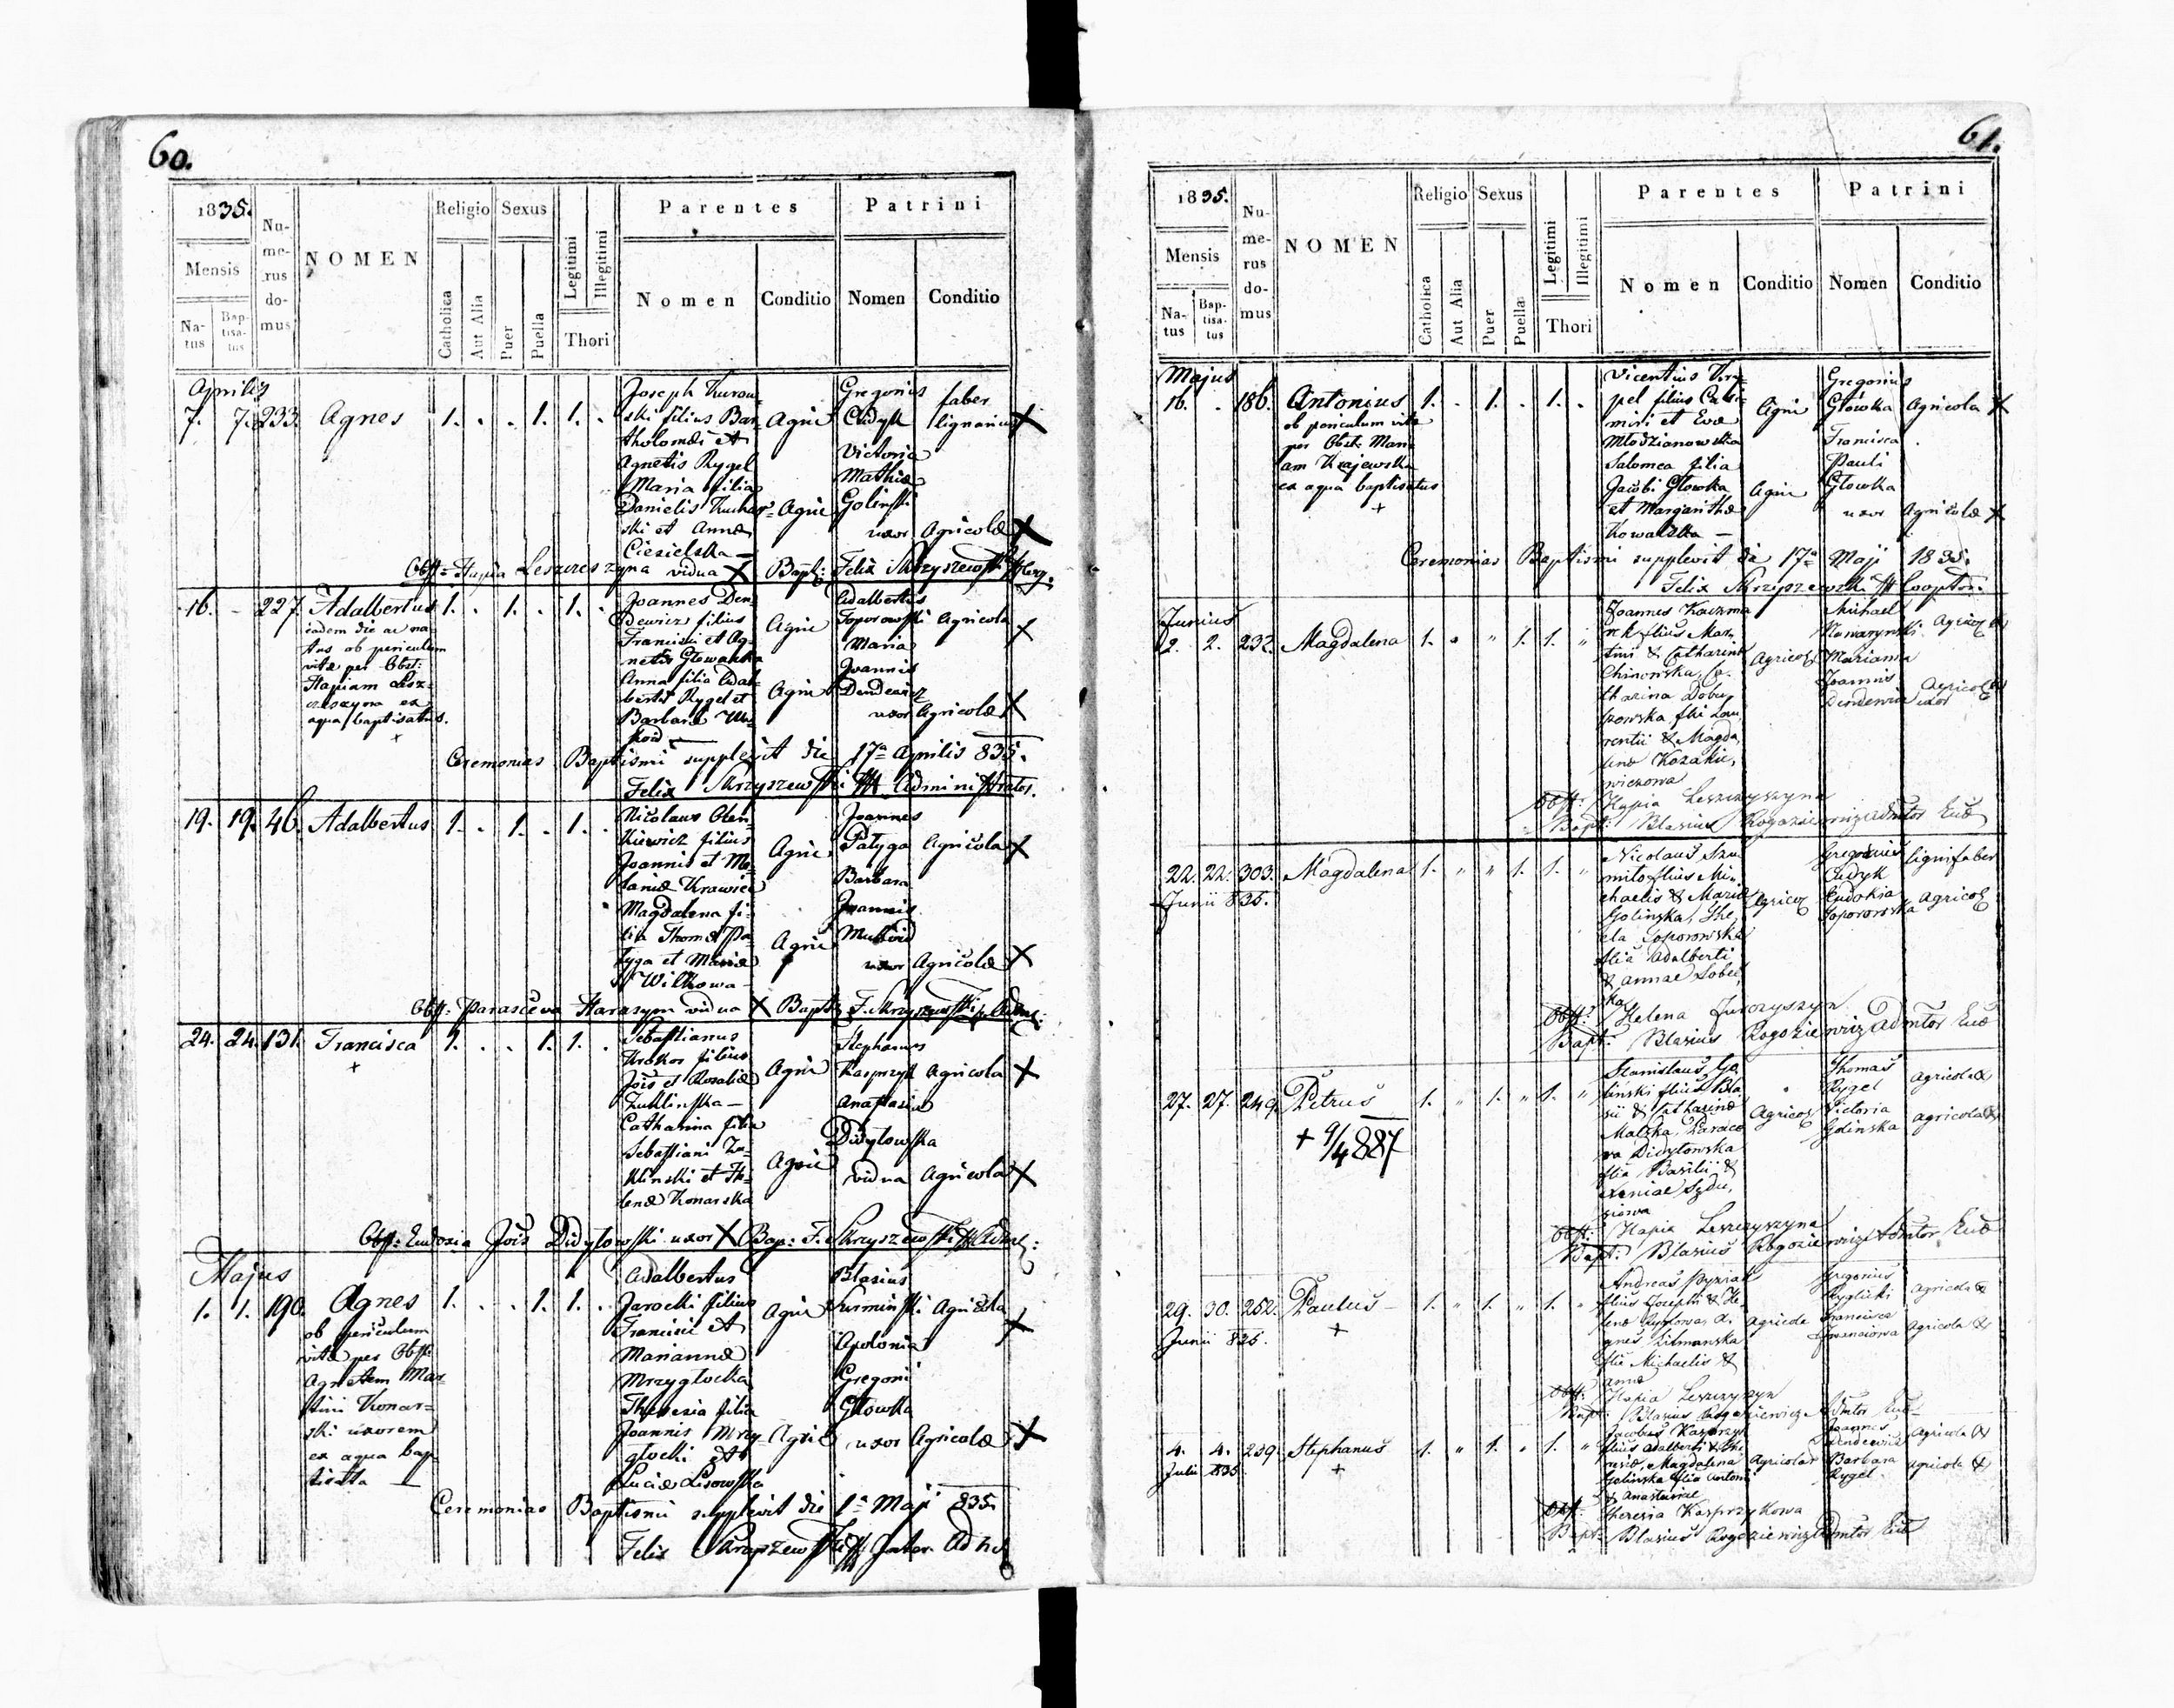 60.
1835.
Mensis
Na-
tus
Bap-
tisa-
tus
Nu-
me-
rus
do-
mus
NOMEN
Religio
Catholica
Aut Alia
Sexus
Puer
Puella
Legitimi
Illegitimi
Thori
Parentes
Nomen
Conditio
Patrini
Nomen
Conditio
Aprilis
7. 7. 233. Agnes 1. . . 1. 1. .
Joseph Kurow-
ski filius Bar-
tholomæi et
Agnetis Rygel
Maria filia
Danielis Kuchar-
ski et Annæ
Ciesielska —
Agric
Agric
Gregorius
Cudyk
Victoria
Mathiæ
Golinski
uxor
faber
lignarius X
Agricolæ X
Obst: Hapia Leszczeszyna vidua X Bapt: Felix Skrzyszewski
16. - 227. Adalbertus 1. . 1. . 1. .
eadem die ac na-
tus ob periculum
vitæ per Obst:
Hapiam Lesz-
czeszyna ex
aqua baptisatus.
+
Joannes Den-
dewicz filius
Francisci et Ag-
netis Glowacka
Anna filia Adal-
berti Rygel et
Barbaræ
Agric
Agric
Adalbertus
Toporowski Agricola X
Maria
Joannis
Dendewicz
uxor Agricolæ X
Ceremonias Baptismi supplevit die 17a Aprilis 835.
Felix Skrzyszewski Administrator.
19. 19. 46. Adalbertus 1. . 1. . 1. .
Nicolaus Olen-
kiewicz filius
Joannis et Me-
laniæ Krawiec
Magdalena fi-
lia Thomæ Pa-
tyga et Mariæ
Wilkowa —
Agric
Agric
Joannes
Patyga Agricola X
Barbara
Joannis
uxor Agricolæ X
Obst: Parasceva Harasym vidua X Bapt: F. Skrzyszewski
24. 24. 131. Francisca 1. . . 1. 1. .
+
Sebastianus
Krokos filius
Jois et Rosaliæ
Zuklinska —
Catharina filia
Sebastiani Zu-
klinski et He-
lenæ Konarska
Agric
Agric
Stephanus
Kasprzyk Agricola X
Anastasia
Didytowska
vidua Agricola X
Obst: Eudoxia Jois Didytowski uxor X Bap: F. Skrzyszewski
Majus
1. 1. 190. Agnes 1. . . 1. 1. .
ob periculum
vitæ per Obst:
Agnetem Mar-
tini Konar-
ski uxorem
ex aqua bap-
tisata
Adalbertus
Jarocki filius
Francisci et
Mariannæ
Mrzyglocka
Theresia filia
Joannis Mrzy-
glocki et
Luciæ Lisowska
Agric
Agric
Blasius
Surminski Agricola X
Apolonia
Gregorii
Glowka
uxor Agricolæ X
Ceremonias Baptismi supplevit die 1a Maji 835.
Felix
61.
1835.
Mensis
Na-
tus
Bap-
tisa-
tus
Nu-
me-
rus
do-
mus
NOMEN
Religio
Catholica
Aut Alia
Sexus
Puer
Puella
Legitimi
Illegitimi
Thori
Parentes
Nomen
Conditio
Patrini
Nomen
Conditio
Majus
16. . 186. Antonius 1. . 1. . 1. .
ob periculum vitæ
per Obst: Mari-
am Krajewska
ex aqua baptisatus
+
Vicentius Kry-
pel filius Casi-
miri et Evæ
Mlodzianowska
Salomea filia
Jacobi Glowka
et Margarithæ
Kowalska —
Agric
Agric
Gregorius
Glowka Agricola X
Francisca
Pauli
Glowka
uxor Agricolæ X
Ceremonias Baptismi supplevit die 17a Maji 1835.
Felix Skrzyszewski Cooptor.
Junius
2. 2. 232. Magdalena 1. " " 1. 1. "
Joannes Kaczma-
rek filius Mar-
tini & Catharinæ
Chimowska, Ca-
tharina Dobu-
szowska filia Lau-
rentii & Magda-
lenæ Kozakie-
wiczowa
Agricol
Michael
Nowarynski Agricol
Marianna
Joannis
Dendewicz uxor Agricol
Obst: Hapia Leszczyszyna
Bapt: Blasius Rogoziewicz Admtor
22. 22. 303. Magdalena 1. " " 1. 1. "
Junii 835.
Nicolaus Szu-
milo filius Mi-
chaelis & Mariæ
Golinska, The-
cla Toporowska
filia Adalberti
& Annae Sobec-
ka
Agricol
Gregorius
Cudyk
Eudokia
Toporowska
lignifaber
Agricol
Obst: Helena Jurczyszyn
Bapt: Blasius Rogoziewicz Admtor
27. 27. 249. Petrus 1. " 1. " 1. "
+ 9/4 887
Stanislaus Go-
linski filius Bla-
sii & Catharinæ
Malzka, Parasce-
va Didytowska
filia Basilii &
Xeniae
Agricol
Thomas
Rygel
Victoria
Golinska
agricola
agricola
Obst: Hapia Leszczyszyna
Bapt: Blasius Rogoziewicz Admtor
29. 30. 252. Paulus 1. " 1. " 1. "
Junii 835.
+
Andreas Pyziak
filius Josephi & He-
lenæ Rytlowa, A-
gnes Litmanska
filia Michaelis &
Annæ
Agricola
Gregorius
Ryglicki
Francisca
agricola
agricola
Obst: Hapia Leszczyszyn
Bapt: Blasius Rogoziewicz Admtor
4. 4. 239. Stephanus 1. " 1. " 1. "
Julii 835
+
Jacobus Kasprzyk
filius Adalberti & The-
resiæ, Magdalena
Golinska filia Antoni
& Anastasiae
Agricolae
Joannes
Dendewicz
Barbara
Rygel
agricola
agricola
Obst: Theresia Kasprzykowa
Bapt: Blasius Rogoziewicz Admtor